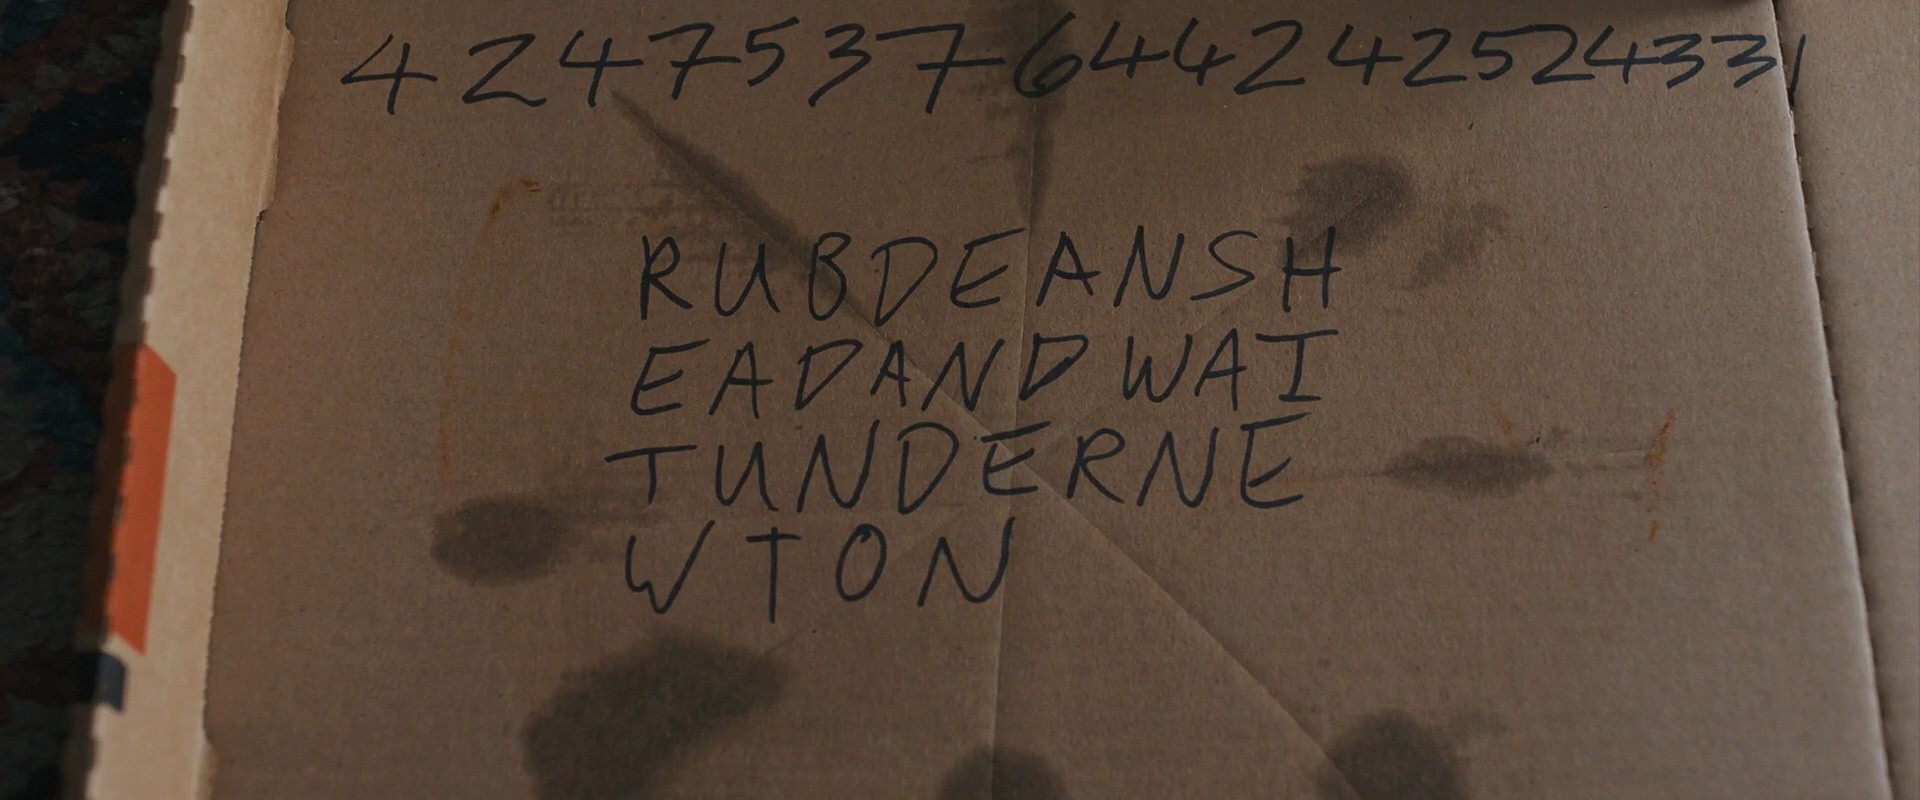 4247537644242524331
RUBDEANSH
EADANDWAI
TUNDERNE
WTON